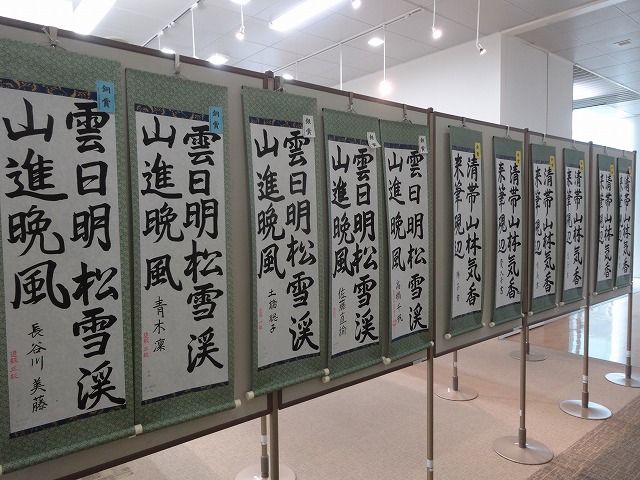 銅賞
雲日明松雪渓
山進晩風
長谷川美藤
銅賞
雲日明松雪渓
山進晩風
青木凜
銀賞
雲日明松雪渓
山進晩風
銀賞
雲日明松雪渓
山進晩風
佐藤真諭
銀賞
雲日明松雪渓
山進晩風
高橋千帆
清帯山林気香
来筆硯辺
清帯山林気香
来筆硯辺
清帯山林気香
来筆硯辺
清帯山林気香
来筆硯辺
清帯山林気香
来筆硯辺
清帯山林気香
来筆硯辺